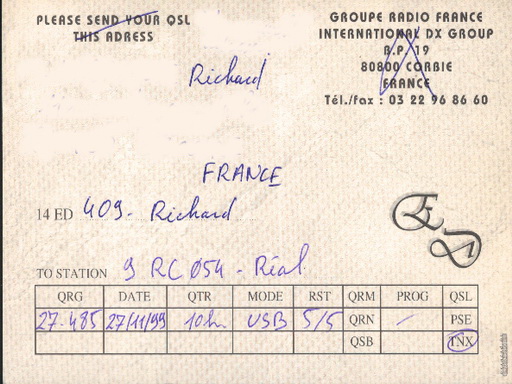 PLEASE SEND YOUR QSL
THIS ADRESS
GROUPE RADIO FRANCE
INTERNATIONAL DX GROUP
B.P. 19
80800 CORBIE
FRANCE
Tél./fax : 03 22 96 86 60
Richard
FRANCE
14 ED 409 - Richard
ED
TO STATION 9 RC Ø54 - Réal
QRG DATE QTR MODE RST QRM PROG QSL
27.485 27/11/99 10h USB 5/5 QRN / PSE
QSB TNX